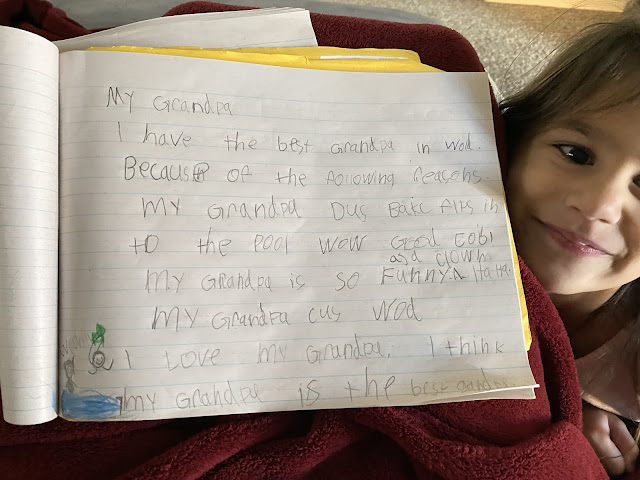 My Grandpa
I have the best Grandpa in wod.
Because of the following Reasons.
My Grandpa Dus Bake flps in
to the pool wow Good Job!
and clown
My Grandpa is so Funny. HaHa.
My Grandpa cus wod
I Love my Grandpa. I think
my Grandpa is the best